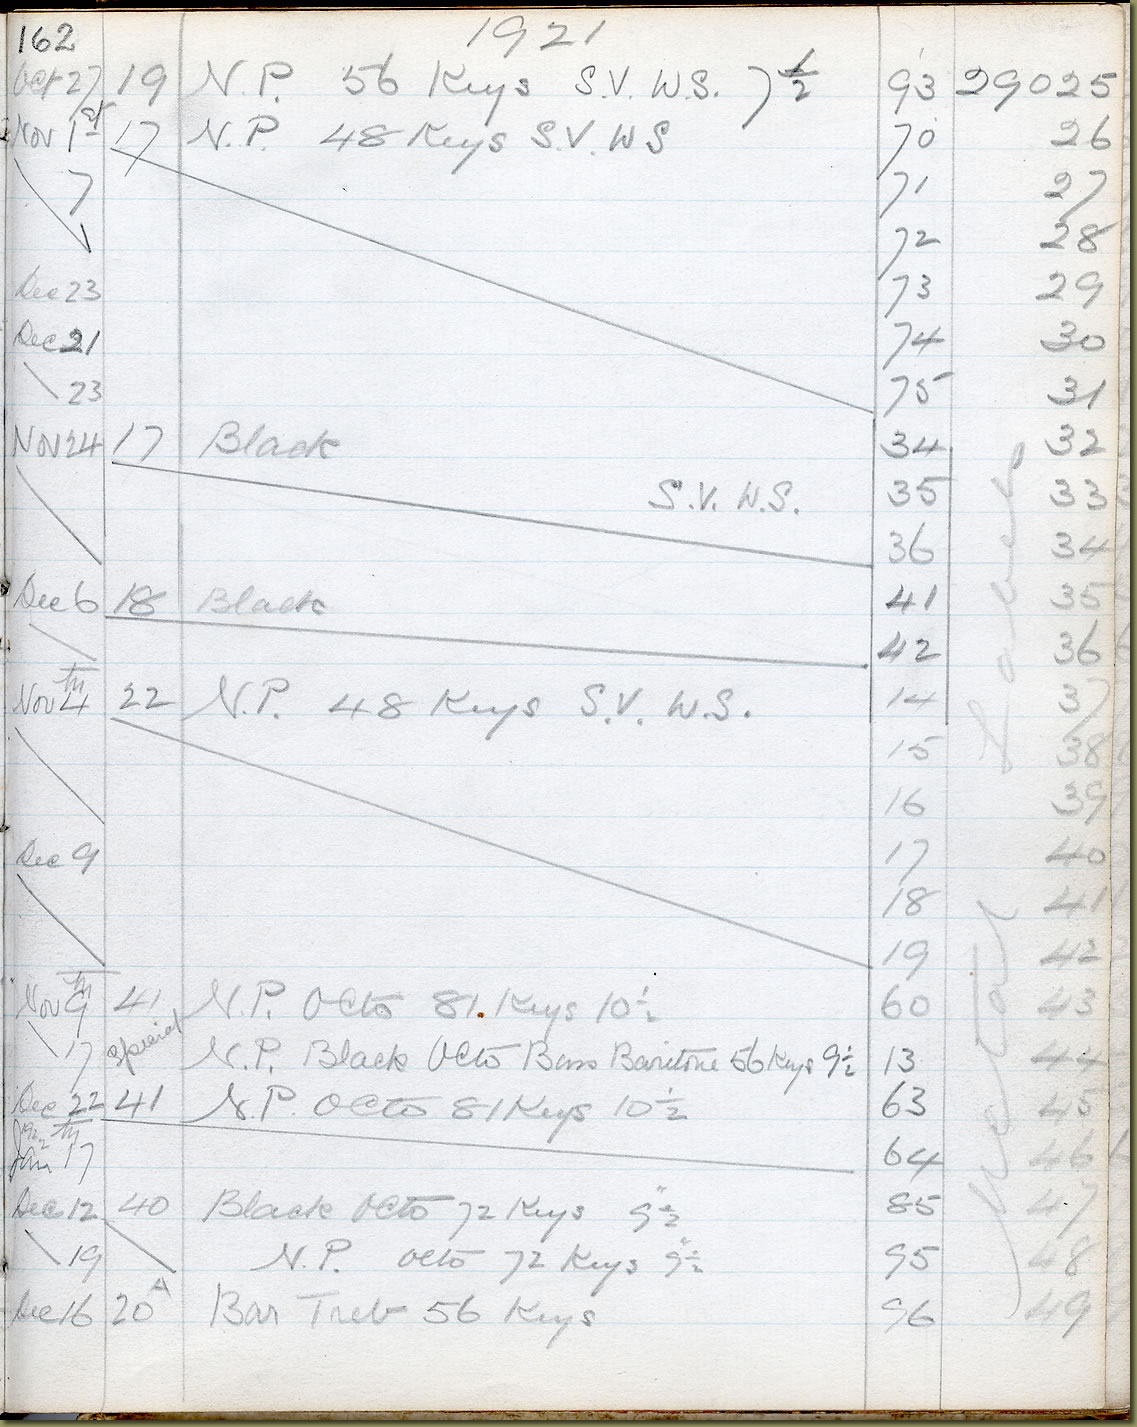 162 1921
Oct 27 19 N.P. 56 Keys S.V. W.S. 7 1/2 93 29025
Nov 1st 17 N.P. 48 Keys S.V. WS 70 26
7 71 27
72 28
Dec 23 73 29
Dec 21 74 30
23 75 31
Nov 24 17 Black 34 32
S.V. W.S. 35 33
36 34
Dec 6 18 Black 41 35
42 36
Nov 4th 22 N.P. 48 Keys S.V. W.S. 14 37
15 38
16 39
Dec 9 17 40
18 41
19 42
Nov 9th 41 N.P. Octo 81 Keys 10 1/2 60 43
17 Special N.P. Black Octo Bass Baritone 56 Keys 9 1/2 13 44
Dec 22 41 N.P. Octo 81 Keys 10 1/2 63 45
1922 Jan 17th 64 46
Dec 12 40 Black Octo 72 Keys 9 1/2" 85 47
19 N.P. Octo 72 Keys 9 1/2" 95 48
Dec 16 20 A Bar Treb 56 Keys 96 49